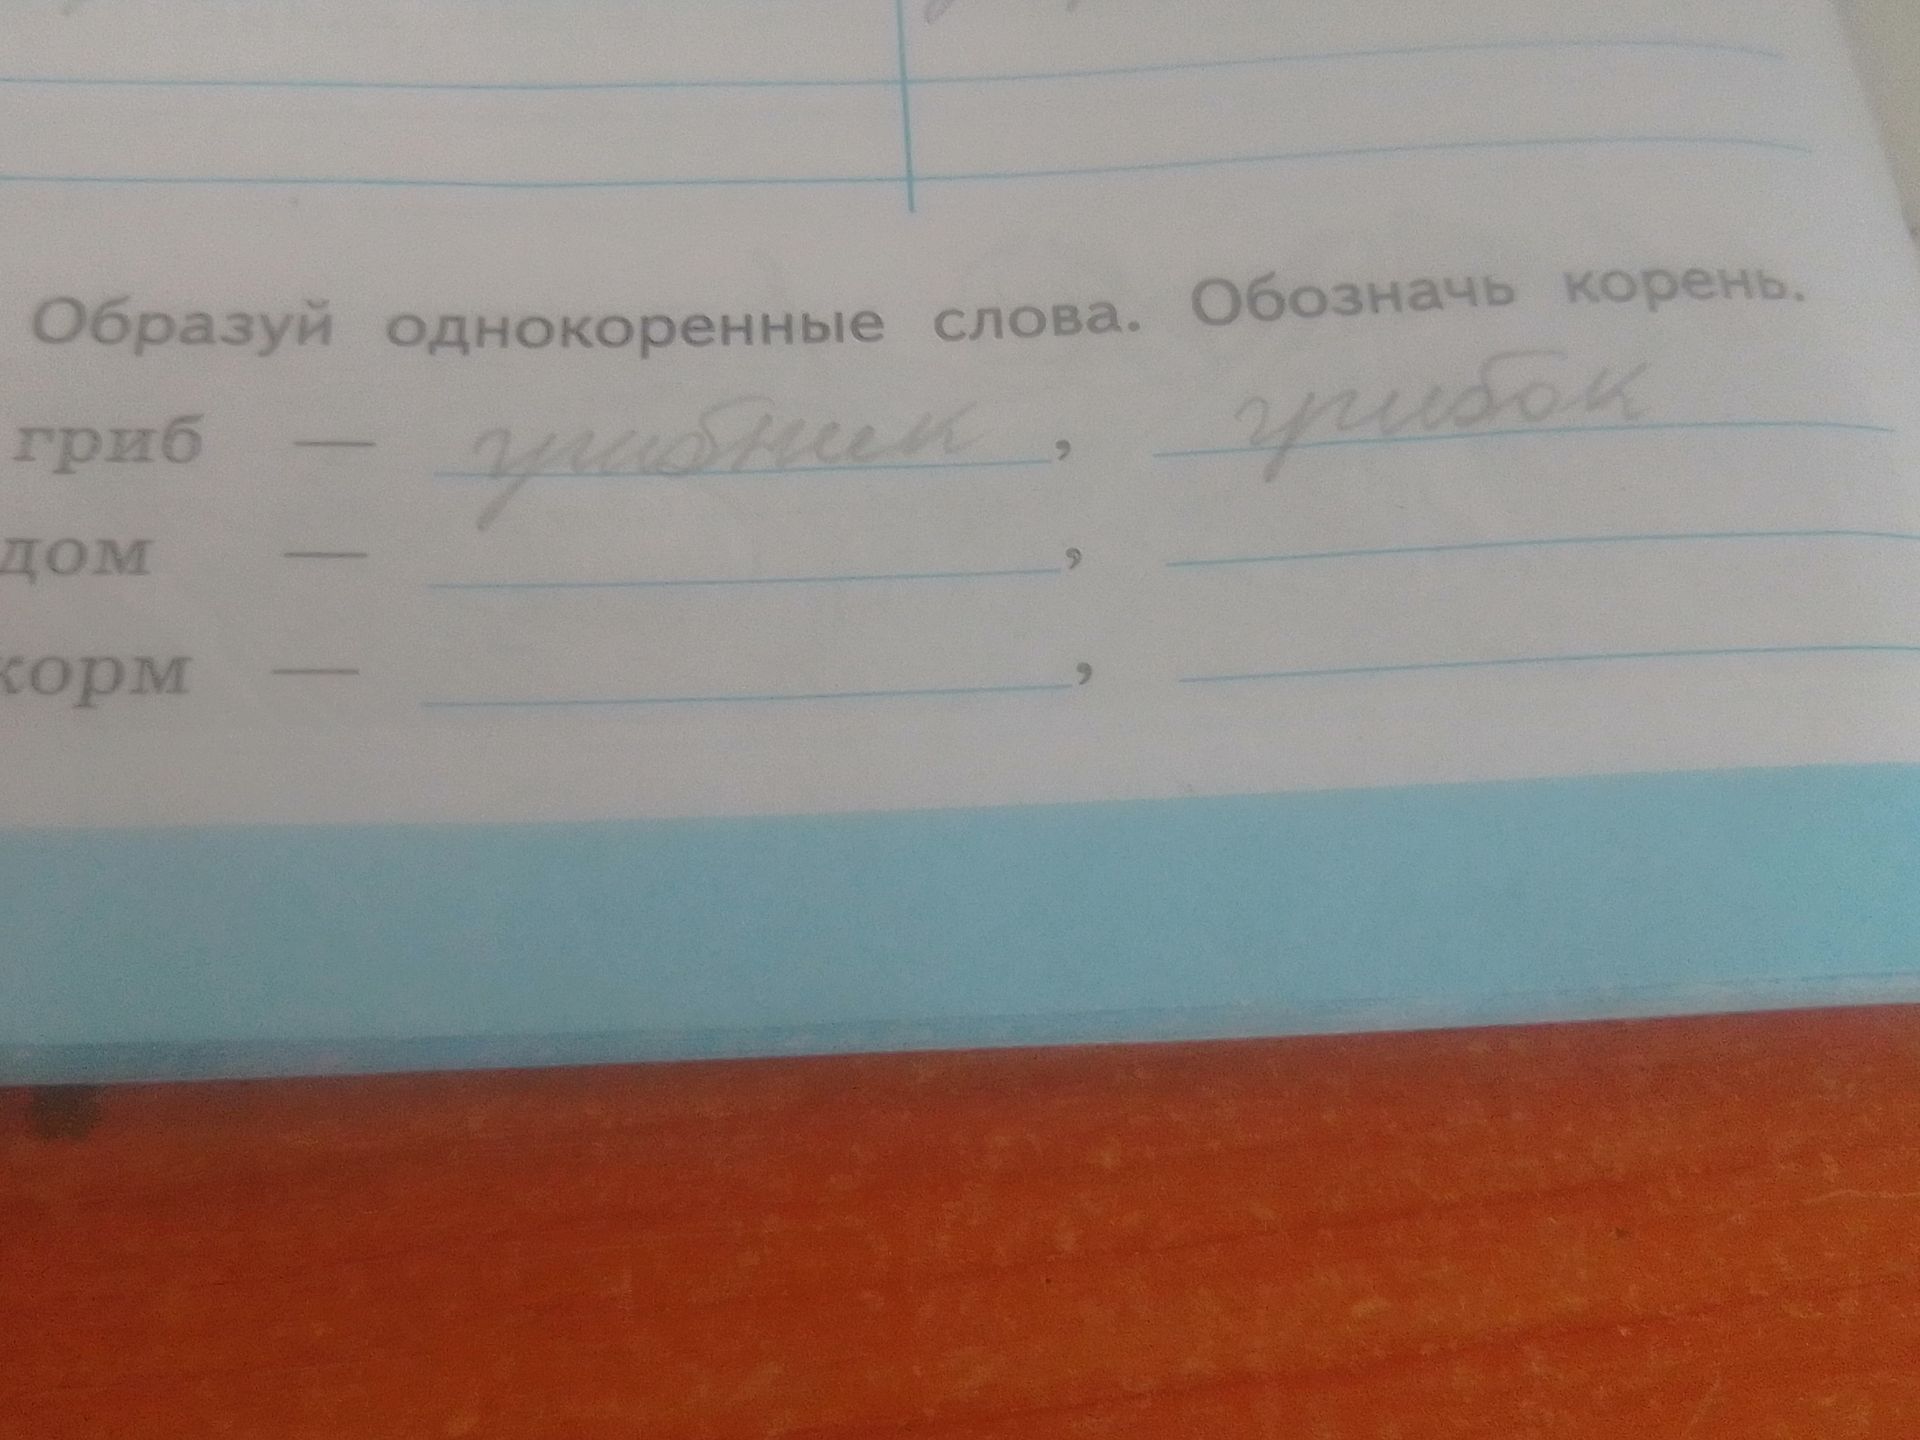 Образуй однокоренные слова. Обозначь корень.
гриб — грибник, грибок
дом — ,
корм — ,